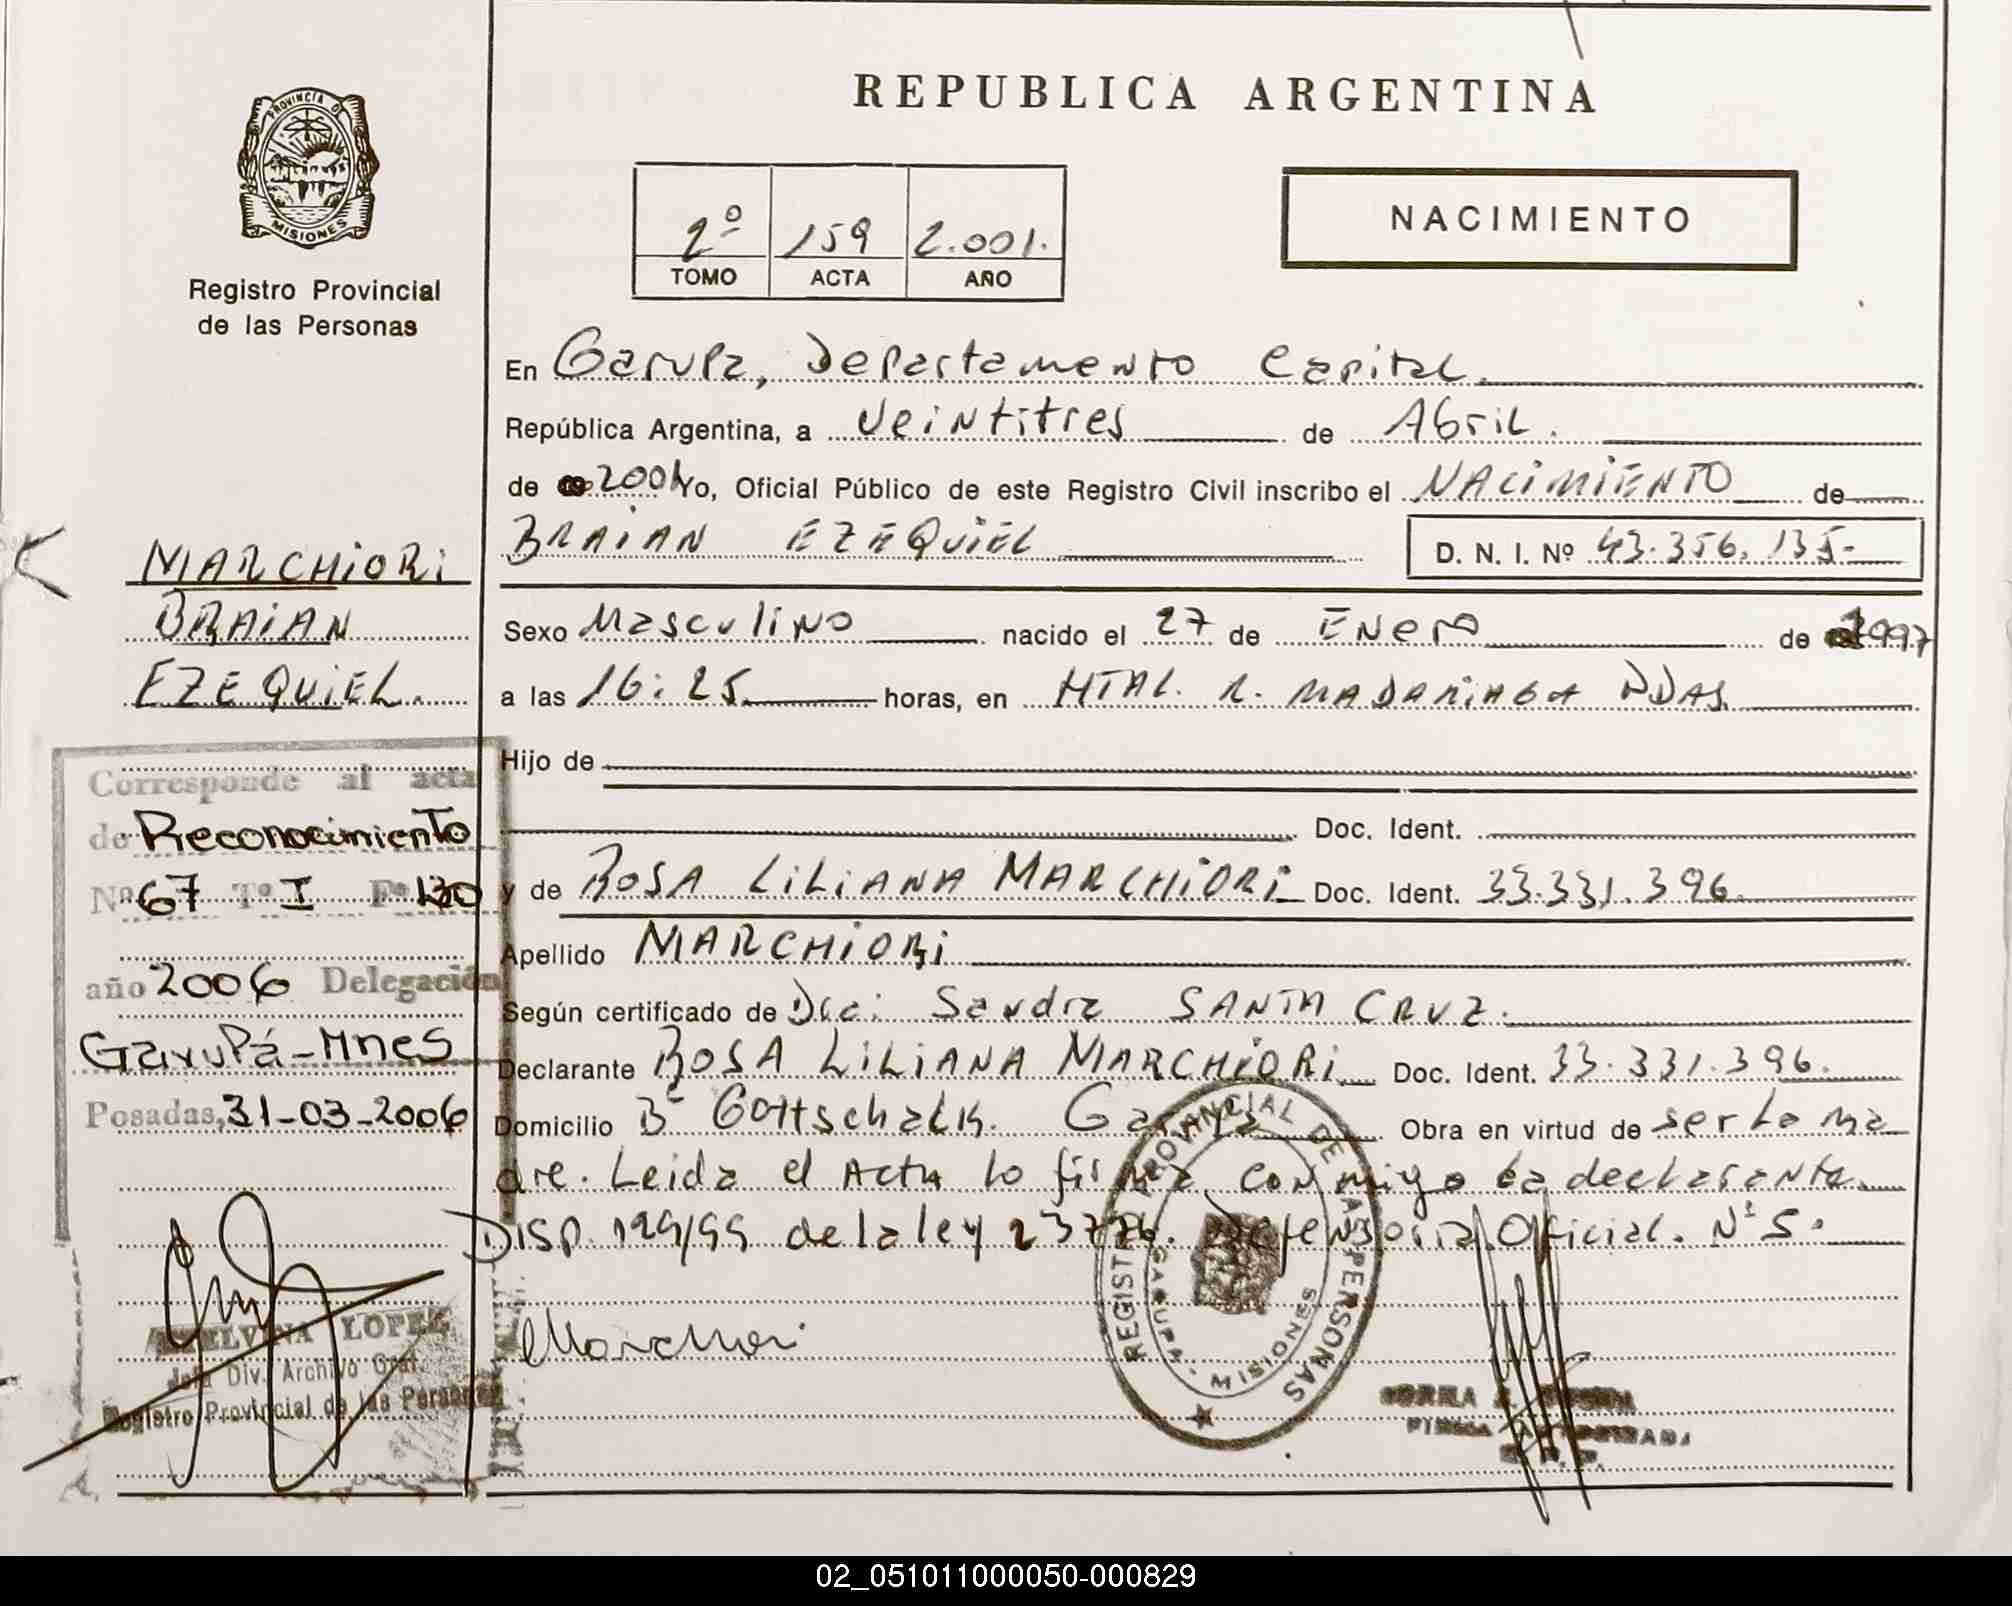 REPUBLICA ARGENTINA
PROVINCIA DE
MISIONES
Registro Provincial
de las Personas
2º 159 2.001.
TOMO ACTA AÑO
NACIMIENTO
En Garupa, Departamento Capital.
República Argentina, a Veintitres de Abril.
de 2001 Yo, Oficial Público de este Registro Civil inscribo el NACIMIENTO de
BRAIAN EZEQUIEL D. N. I. Nº 43.356.135-
Sexo Masculino nacido el 27 de Enero de 1997
a las 16:25 horas, en HTAL. R. MADARIAGA PDAS.
Hijo de
Doc. Ident.
y de ROSA LILIANA MARCHIORI Doc. Ident. 33.331.396.
Apellido MARCHIORI
Según certificado de Dra: Sandra SANTA CRUZ.
Declarante ROSA LILIANA MARCHIORI Doc. Ident. 33.331.396.
Domicilio Bº Gottschalk. Garupa Obra en virtud de ser la ma
dre. Leida el Acta lo firma conmigo la declarante.
DISP. 129/99 de la ley 23776. Defensoria Oficial. Nº 5.
Marchiori
REGISTRO PROVINCIAL DE LAS PERSONAS
GARUPA - MISIONES
MARCHIORI
BRAIAN
EZEQUIEL.
Corresponde al acta
de Reconocimiento
Nº 67 Tº I Fº 130
año 2006 Delegación
Garupá-Mnes
Posadas, 31-03-2006
ELVINA LOPEZ
Jefa Div. Archivo Gral.
Registro Provincial de las Personas
02_051011000050-000829